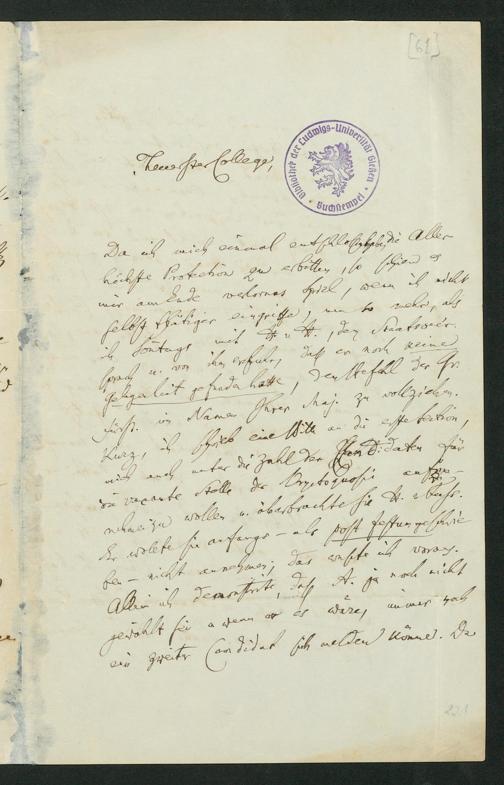 [61]
Bibliothek der Ludwigs-Universität Gießen
Buchstempel
Theuerster College,
Da ich mich einmal entschlossen habe, die Aller-
höchste Protection zu erbitten, so schien es
mir am Ende verlornes Spiel, wenn ich nicht
selbst thätiger eingriffe, um so mehr, als
ich Sontags mit dem Staatssecr.
sprach u. von ihm erfuhr, daß er noch keine
Gelegenheit gefunden hatte, den Befehl der Gr.
Fürst. im Namen Ihrer Maj. zu vollziehen.
Kurz, ich schrieb eine Bitte an die erste Section,
mich auch unter die Zahl der Candidaten für
die vacante Stelle der Oryctognosie aufzu-
nehmen zu wollen u. überbrachte sie
Er wollte sie anfangs – als post festum geschrie-
ben – nicht annehmen, das wußte ich voraus.
Allein ich demonstrirte, daß A. ja noch nicht
gewählt sei u. wenn er es wäre, immer noch
ein zweiter Candidat sich melden könne. Da
221